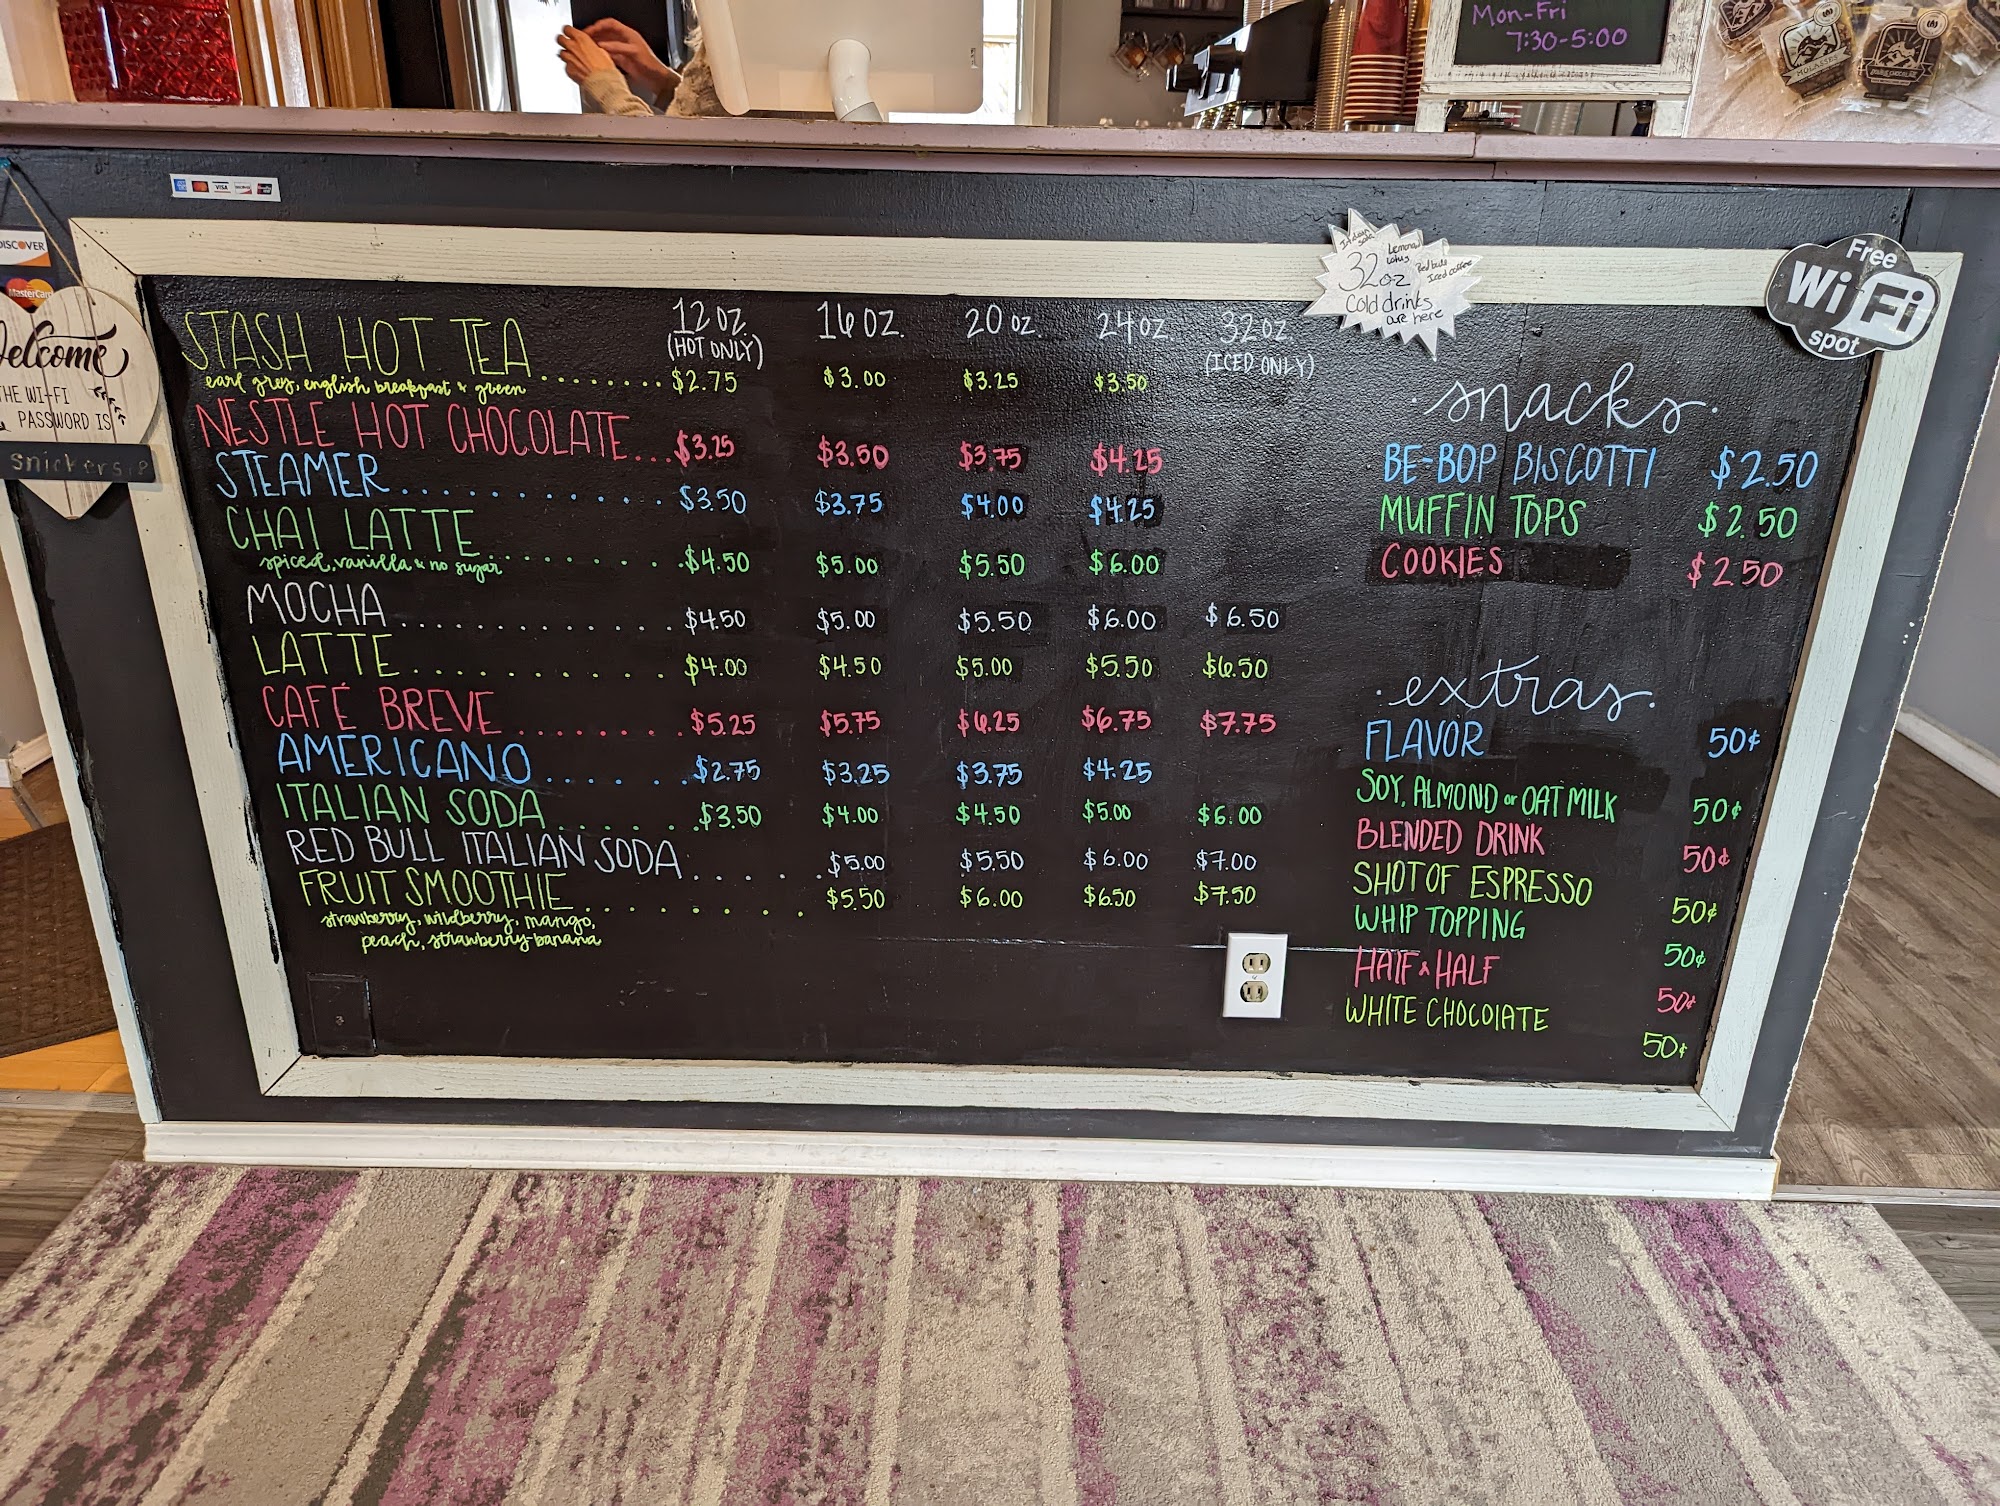 Mon-Fri
7:30-5:00
MOLASSES
DOUBLE CHOCOLATE
VISA
DISCOVER
MasterCard
Welcome
THE WI-FI
PASSWORD IS
snickers18
32oz
Lemonade
Lotus
Red bull
Iced coffee
Cold drinks
are here
Free
Wi Fi
spot
12 OZ. 16 OZ. 20 OZ. 24 OZ. 32 OZ.
(HOT ONLY) (ICED ONLY)
STASH HOT TEA ........ $2.75 $3.00 $3.25 $3.50
earl grey, english breakfast & green
NESTLE HOT CHOCOLATE... $3.25 $3.50 $3.75 $4.25
STEAMER............ $3.50 $3.75 $4.00 $4.25
CHAI LATTE......... $4.50 $5.00 $5.50 $6.00
spiced, vanilla & no sugar
MOCHA............. $4.50 $5.00 $5.50 $6.00 $6.50
LATTE............ $4.00 $4.50 $5.00 $5.50 $6.50
CAFÉ BREVE ........ $5.25 $5.75 $6.25 $6.75 $7.75
AMERICANO ....... $2.75 $3.25 $3.75 $4.25
ITALIAN SODA ...... $3.50 $4.00 $4.50 $5.00 $6.00
RED BULL ITALIAN SODA..... $5.00 $5.50 $6.00 $7.00
FRUIT SMOOTHIE........ $5.50 $6.00 $6.50 $7.50
strawberry, wildberry, mango,
peach, strawberry banana
snacks
BE-BOP BISCOTTI $2.50
MUFFIN TOPS $2.50
COOKIES $2.50
extras
FLAVOR 50¢
SOY, ALMOND or OAT MILK 50¢
BLENDED DRINK 50¢
SHOT OF ESPRESSO 50¢
WHIP TOPPING 50¢
HALF & HALF 50¢
WHITE CHOCOLATE 50¢